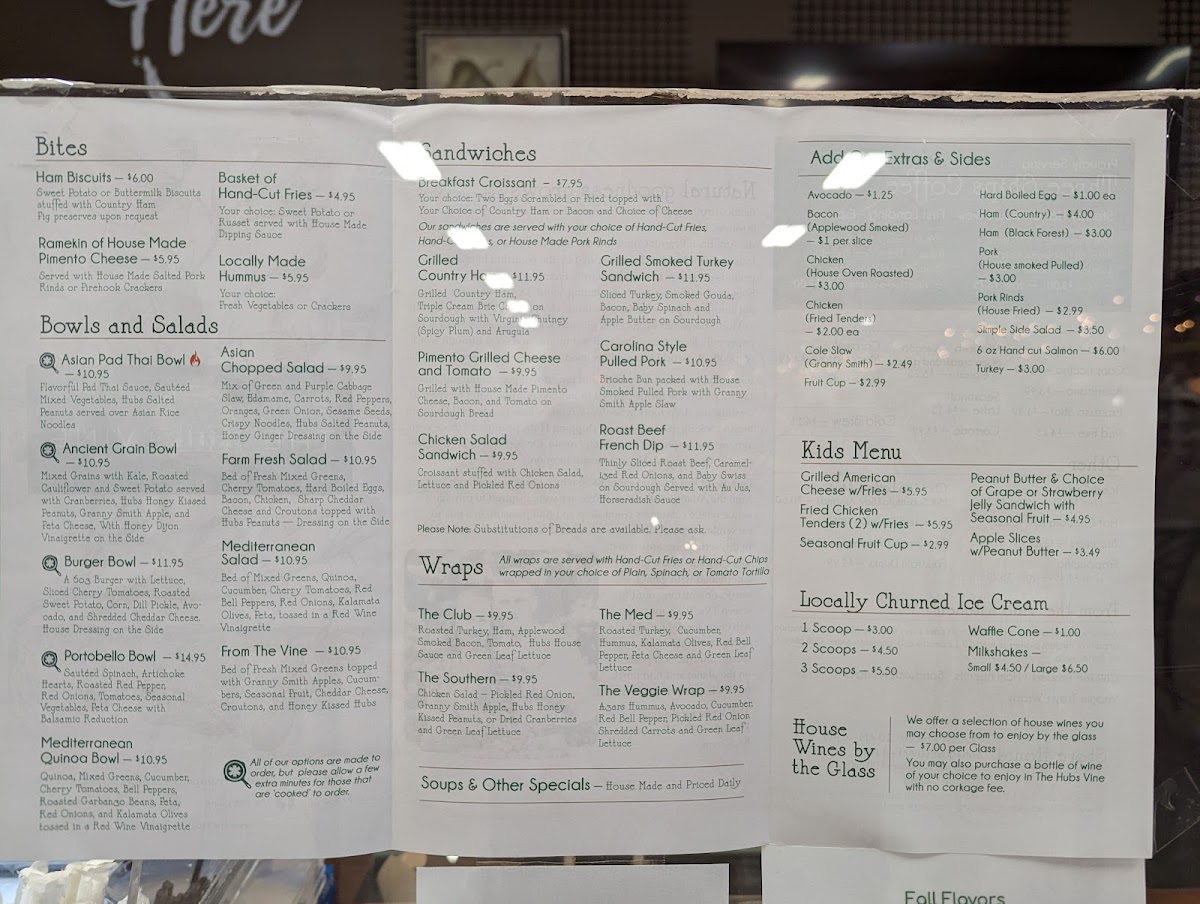 Here
Bites
Ham Biscuits — $6.00
Sweet Potato or Buttermilk Biscuits
stuffed with Country Ham
Fig preserves upon request
Ramekin of House Made
Pimento Cheese — $5.95
Served with House Made Salted Pork
Rinds or Firehook Crackers
Basket of
Hand-Cut Fries — $4.95
Your choice: Sweet Potato or
Russet served with House Made
Dipping Sauce
Locally Made
Hummus — $5.95
Your choice:
Fresh Vegetables or Crackers
Bowls and Salads
Asian Pad Thai Bowl
— $10.95
Flavorful Pad Thai Sauce, Sautéed
Mixed Vegetables, Hubs Salted
Peanuts served over Asian Rice
Noodles
Ancient Grain Bowl
— $10.95
Mixed Grains with Kale, Roasted
Cauliflower and Sweet Potato served
with Cranberries, Hubs Honey Kissed
Peanuts, Granny Smith Apple, and
Feta Cheese, With Honey Dijon
Vinaigrette on the Side
Burger Bowl — $11.95
A 603 Burger with Lettuce,
Sliced Cherry Tomatoes, Roasted
Sweet Potato, Corn, Dill Pickle, Avo-
cado, and Shredded Cheddar Cheese.
House Dressing on the Side
Portobello Bowl — $14.95
Sautéed Spinach, Artichoke
Hearts, Roasted Red Pepper,
Red Onions, Tomatoes, Seasonal
Vegetables, Feta Cheese with
Balsamic Reduction
Mediterranean
Quinoa Bowl — $10.95
Quinoa, Mixed Greens, Cucumber,
Cherry Tomatoes, Bell Peppers,
Roasted Garbanzo Beans, Feta,
Red Onions, and Kalamata Olives
tossed in a Red Wine Vinaigrette
Asian
Chopped Salad — $9.95
Mix of Green and Purple Cabbage
Slaw, Edamame, Carrots, Red Peppers,
Oranges, Green Onion, Sesame Seeds,
Crispy Noodles, Hubs Salted Peanuts,
Honey Ginger Dressing on the Side
Farm Fresh Salad — $10.95
Bed of Fresh Mixed Greens,
Cherry Tomatoes, Hard Boiled Eggs,
Bacon, Chicken, Sharp Cheddar
Cheese and Croutons topped with
Hubs Peanuts — Dressing on the Side
Mediterranean
Salad — $10.95
Bed of Mixed Greens, Quinoa,
Cucumber, Cherry Tomatoes, Red
Bell Peppers, Red Onions, Kalamata
Olives, Feta, tossed in a Red Wine
Vinaigrette
From The Vine — $10.95
Bed of Fresh Mixed Greens topped
with Granny Smith Apples, Cucum-
bers, Seasonal Fruit, Cheddar Cheese,
Croutons, and Honey Kissed Hubs
All of our options are made to
order, but please allow a few
extra minutes for those that
are 'cooked' to order.
Sandwiches
Breakfast Croissant — $7.95
Your choice: Two Eggs Scrambled or Fried topped with
Your Choice of Country Ham or Bacon and Choice of Cheese
Our sandwiches are served with your choice of Hand-Cut Fries,
or House Made Pork Rinds
Grilled
Country $11.95
Grilled Country Ham,
Triple Cream Brie on
Sourdough with Virginia Chutney
(Spicy Plum) and Arugula
Pimento Grilled Cheese
and Tomato — $9.95
Grilled with House Made Pimento
Cheese, Bacon, and Tomato on
Sourdough Bread
Chicken Salad
Sandwich — $9.95
Croissant stuffed with Chicken Salad,
Lettuce and Pickled Red Onions
Grilled Smoked Turkey
Sandwich — $11.95
Sliced Turkey, Smoked Gouda,
Bacon, Baby Spinach and
Apple Butter on Sourdough
Carolina Style
Pulled Pork — $10.95
Brioche Bun packed with House
Smoked Pulled Pork with Granny
Smith Apple Slaw
Roast Beef
French Dip — $11.95
Thinly Sliced Roast Beef, Caramel-
ized Red Onions, and Baby Swiss
on Sourdough Served with Au Jus,
Horseradish Sauce
Please Note: Substitutions of Breads are available. Please ask.
Wraps
All wraps are served with Hand-Cut Fries or Hand-Cut Chips
wrapped in your choice of Plain, Spinach, or Tomato Tortilla
The Club — $9.95
Roasted Turkey, Ham, Applewood
Smoked Bacon, Tomato, Hubs House
Sauce and Green Leaf Lettuce
The Southern — $9.95
Chicken Salad – Pickled Red Onion,
Granny Smith Apple, Hubs Honey
Kissed Peanuts, or Dried Cranberries
and Green Leaf Lettuce
The Med — $9.95
Roasted Turkey, Cucumber,
Hummus, Kalamata Olives, Red Bell
Pepper, Feta Cheese and Green Leaf
Lettuce
The Veggie Wrap — $9.95
Asars Hummus, Avocado, Cucumber,
Red Bell Pepper, Pickled Red Onion
Shredded Carrots and Green Leaf
Lettuce
Soups & Other Specials — House Made and Priced Daily
Add Extras & Sides
Avocado — $1.25
Bacon
(Applewood Smoked)
— $1 per slice
Chicken
(House Oven Roasted)
— $3.00
Chicken
(Fried Tender)
— $2.00 ea
Cole Slaw
(Granny Smith) — $2.49
Fruit Cup — $2.99
Hard Boiled Egg — $1.00 ea
Ham (Country) — $4.00
Ham (Black Forest) — $3.00
Pork
(House smoked Pulled)
— $3.00
Pork Rinds
(House Fried) — $2.99
Simple Side Salad — $3.50
6 oz Hand cut Salmon — $6.00
Turkey — $3.00
Kids Menu
Grilled American
Cheese w/Fries — $5.95
Fried Chicken
Tenders (2) w/Fries — $5.95
Seasonal Fruit Cup — $2.99
Peanut Butter & Choice
of Grape or Strawberry
Jelly Sandwich with
Seasonal Fruit — $4.95
Apple Slices
w/Peanut Butter — $3.49
Locally Churned Ice Cream
1 Scoop — $3.00
2 Scoops — $4.50
3 Scoops — $5.50
Waffle Cone — $1.00
Milkshakes —
Small $4.50 / Large $6.50
House
Wines by
the Glass
We offer a selection of house wines you
may choose from to enjoy by the glass
— $7.00 per Glass
You may also purchase a bottle of wine
of your choice to enjoy in The Hubs Vine
with no corkage fee.
Fall Flavors